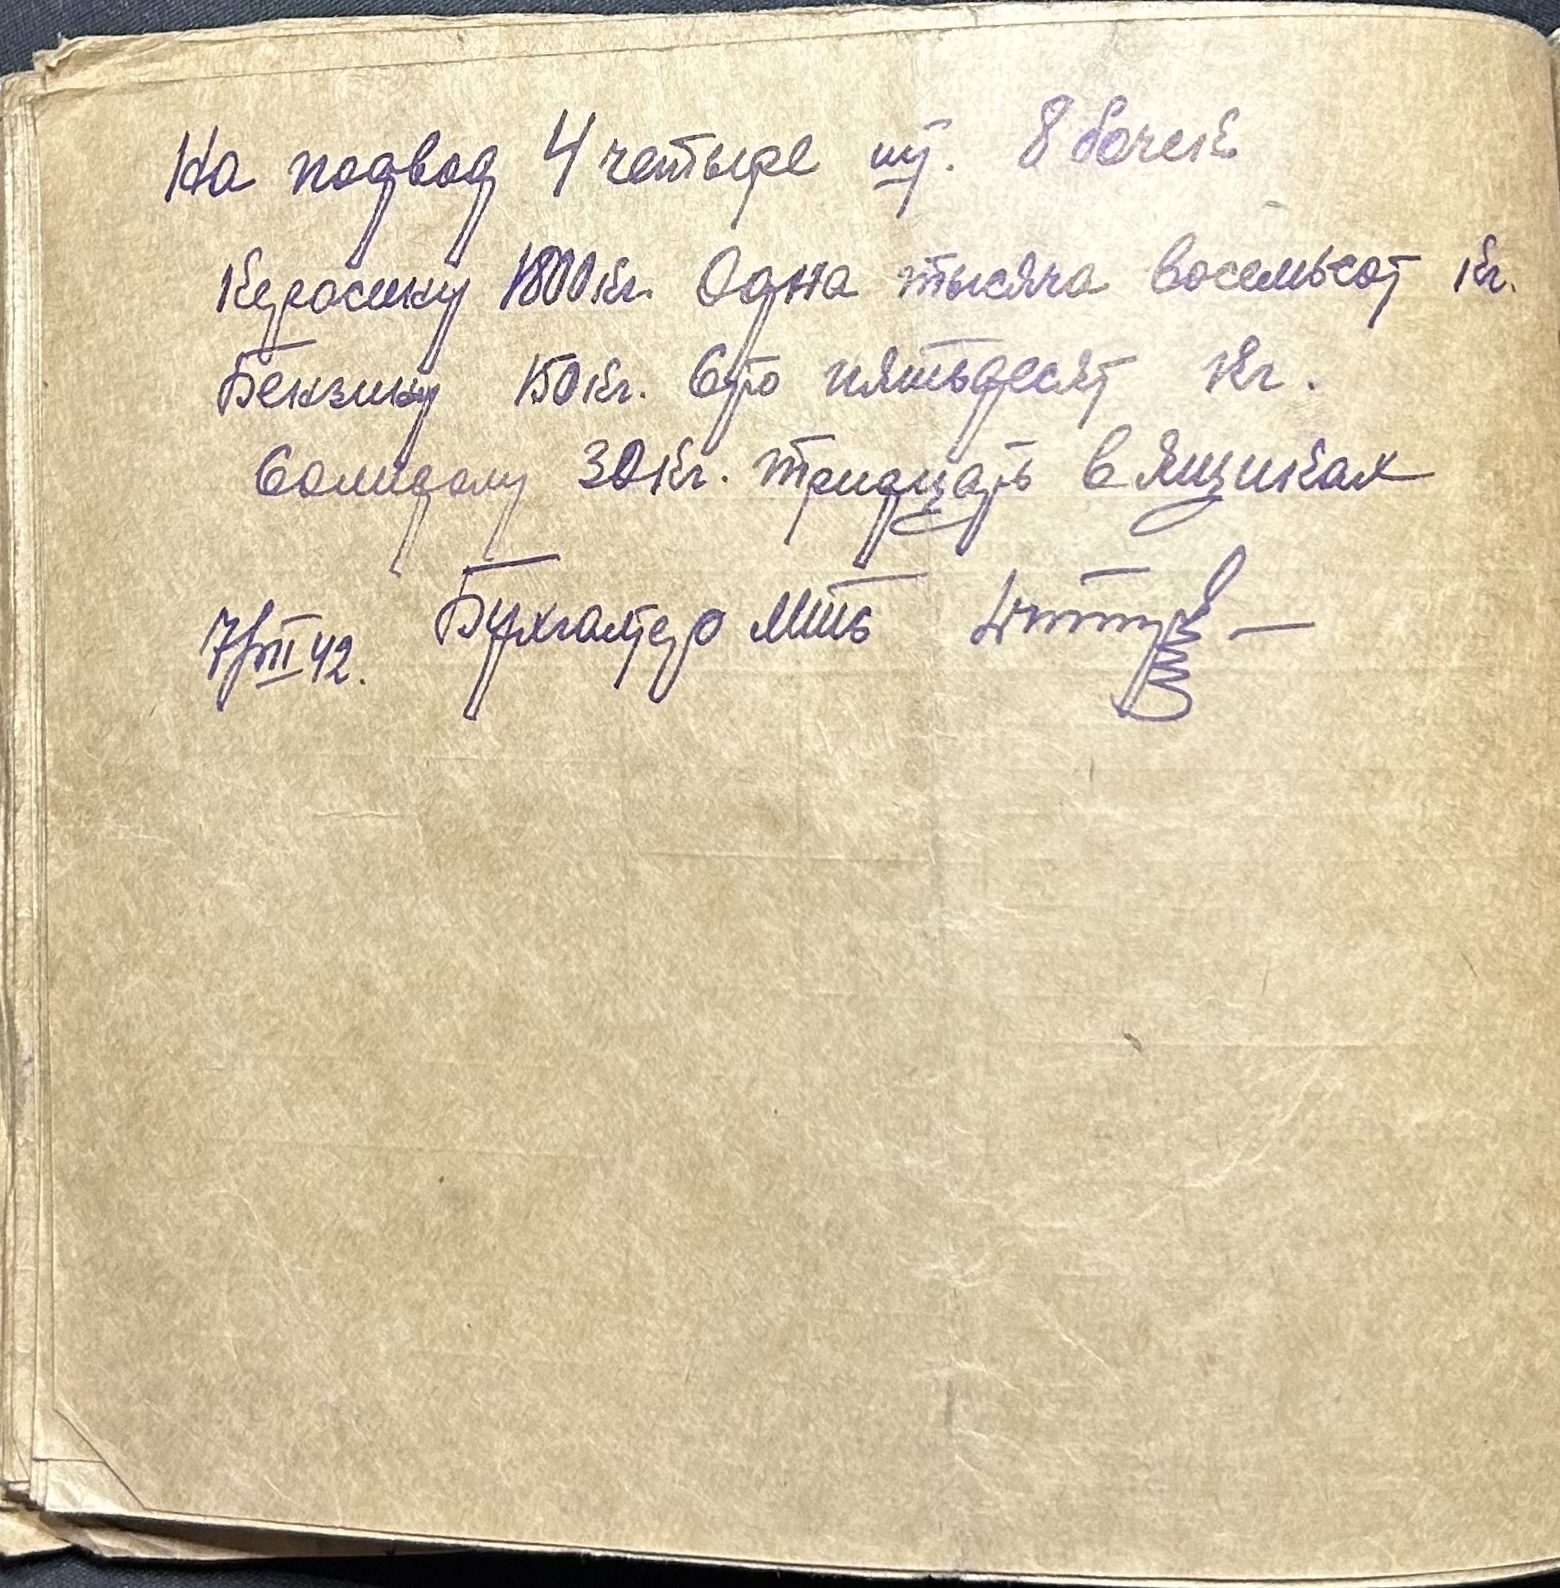 На подвод 4 четыре шт. 8 бочек
Керосину 1800 кг. Одна тысяча восемьсот кг.
Бензину 150 кг. Сто пятьдесят кг.
Солидолу 30 кг. тридцать в ящиках
7/VII 42. Бухгалтер МТМ